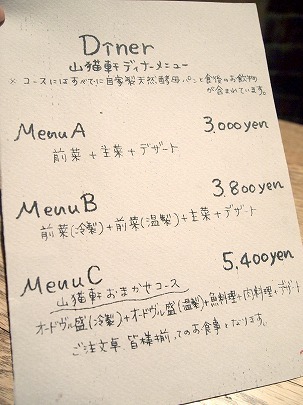 Diner
山猫軒ディナーメニュー
※ コースにはすべてに自家製天然酵母パンと食後のお飲物
が含まれています。
Menu A 3,000yen
前菜 + 主菜 + デザート
Menu B 3,800yen
前菜(冷製) + 前菜(温製) + 主菜 + デザート
Menu C 5,400yen
山猫軒おまかせコース
オードヴル盛(冷製)+オードヴル盛(温製)+魚料理+肉料理+デザート
ご注文卓 皆様揃ってのお食事となります。